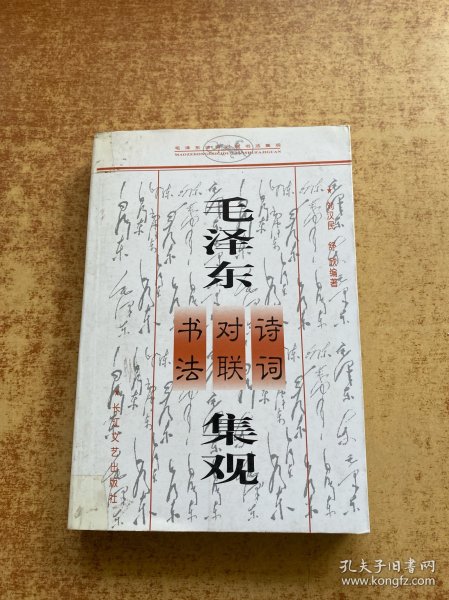 毛泽东诗词对联书法集观
MAOZEDONGSHICIDUILIANSHUFAJIGUAN
刘汉民 舒欣编著
毛泽东
诗词
对联
书法
集观
长江文艺出版社
孔夫子旧书网
www.kongfz.com